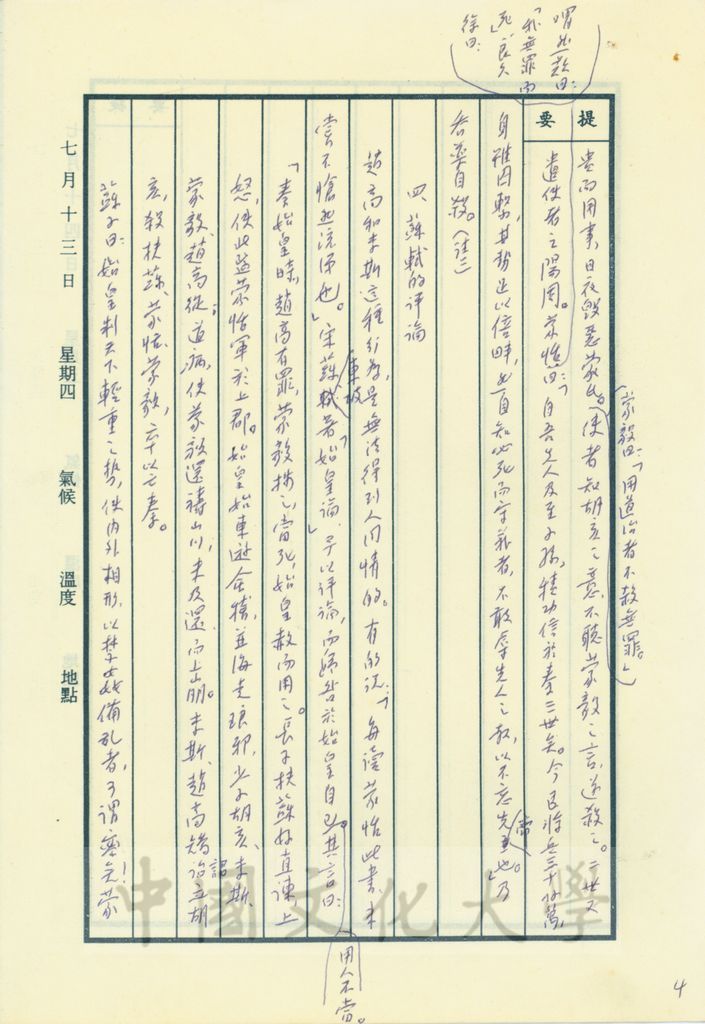 喟然歎曰：
「我無罪而
死」，良久
徐曰：
提要
七月十三日 星期四 氣候 溫度 地點
貴而用事，日夜毀惡蒙氏。使者知胡亥之意，不聽蒙毅之言，遂殺之。二世又
（蒙毅曰：「用道治者不殺無罪。」
遣使者之陽周。蒙恬曰：「自吾先人及至子孫，積功信於秦三世矣。今臣將兵三十餘萬，
身雖囚繫，其勢足以倍畔，然自知必死而守義者，不敢辱先人之教，以不忘先帝也」。乃
吞藥自殺。（註二）
四、蘇軾的評論
趙高和李斯這種行為，是無法得到人同情的。有的說：「每讀蒙恬此書，未
嘗不愴然流涕也」。宋蘇東坡著「始皇論」予以評論，而歸咎於始皇自己用人不當。其言曰：
「秦始皇時，趙高有罪，蒙毅按之，當死，始皇赦而用之。長子扶蘇好直諫，上
怒，使北監蒙恬軍於上郡。始皇始東遊會稽，並海走琅邪，少子胡亥、李斯、
蒙毅、趙高從；道病，使蒙毅還禱山川，未及還，而上崩。李斯、趙高矯詔立胡
亥，殺扶蘇、蒙恬、蒙毅，卒以亡秦。
蘇子曰：始皇制天下輕重之勢，使內外相形，以禁姦備亂者，可謂密矣！蒙
中國文化大學
4